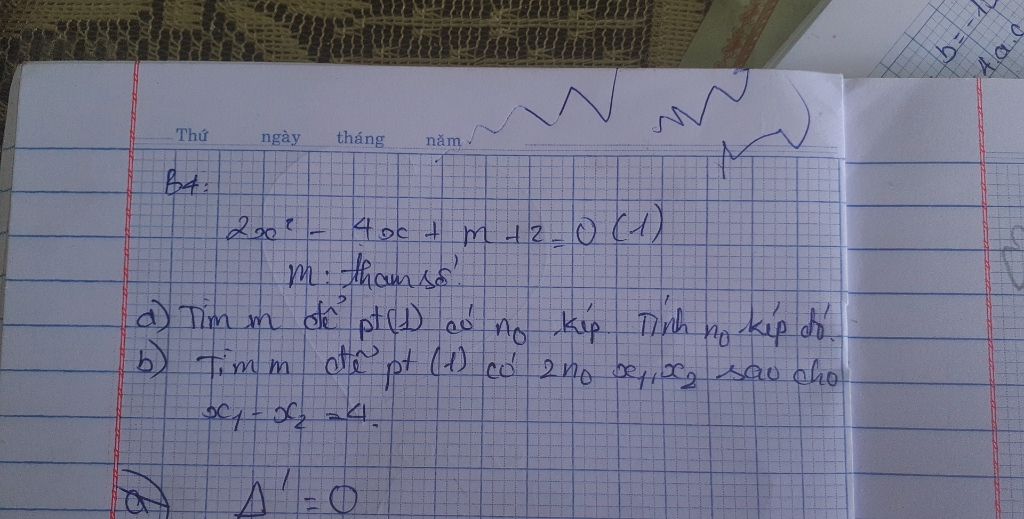 b = -1
4ac
Thứ ngày tháng năm
B4:
2x² - 4x + m + 2 = 0 (1)
m: tham số.
a) Tìm m để pt (1) có n₀ kép Tính n₀ kép đó.
b) Tìm m để pt (1) có 2 n₀ x₁, x₂ sao cho
x₁ - x₂ = 4.
a) Δ' = 0